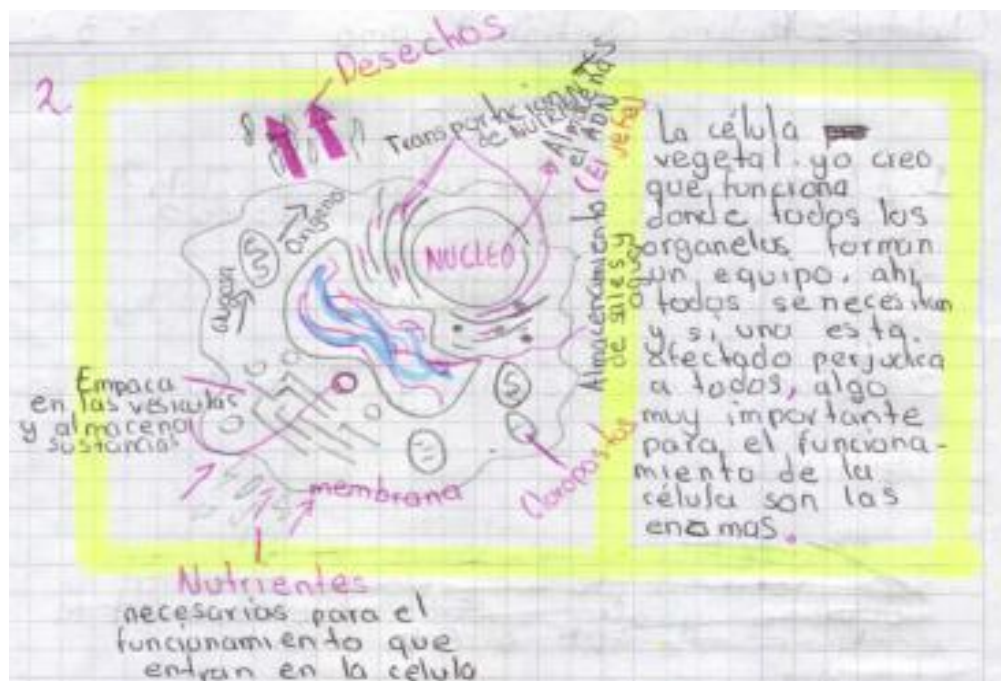 2
Desechos
Transportación
de Nutrientes
Almacena
el ADN
(El Jefe)
NUCLEO
Oxígeno
Almacenamiento
de sales y
agua
Empaca
en las vesículas
y almacena
sustancias
membrana
Cloropastos
Nutrientes
necesarias para el
funcionamiento que
entran en la célula
La célula
vegetal. yo creo
que funciona
donde todos los
organelos forman
un equipo. ahí
todos se necesitan
y si uno esta
afectado perjudica
a todos, algo
muy importante
para el funciona-
miento de la
célula son las